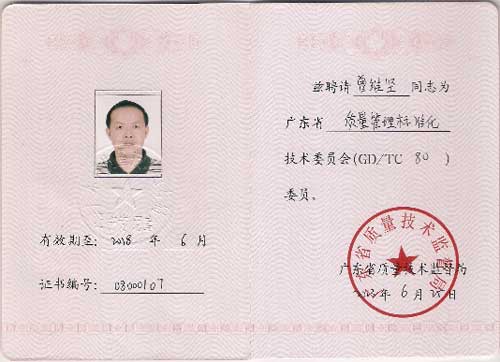 有效期至: 2018 年 6 月
证书编号: 0800107
兹聘请 曾维坚 同志为
广东省 质量管理标准化
技术委员会(GD/TC 80 )
委员。
广东省质量技术监督局
广东省质量技术监督局
6 月 25 日